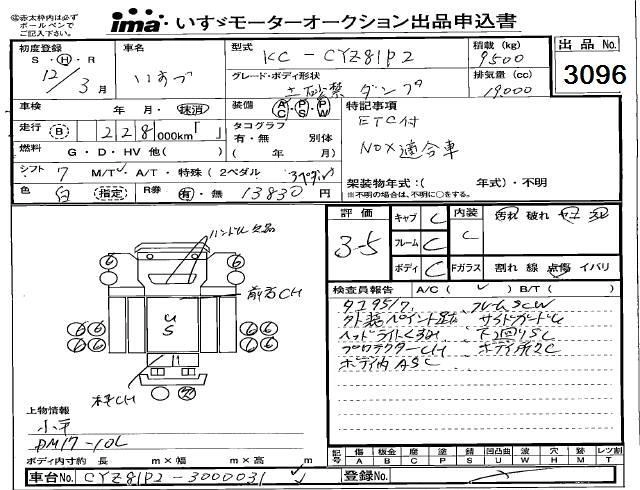 ◎赤太枠内は必ず
ボールペンで
ご記入下さい。
ima いすゞモーターオークション出品申込書
初度登録 車名 型式 KC-CYZ81P2 積載(kg) 9500 出品No. 3096
S・H・R 12/3月 いすゞ グレード・ボディ形状 土砂禁 ダンプ 排気量(cc) 19000
車検 年・月・抹消 装備 AC・PS・PW 特記事項
ETC付
NOX適合車
走行 B 228,000km「 」 タコグラフ 有・無 別体
燃料 G・D・HV 他( ) ( 年 ) 月
シフト 7 M/T・A/T・特殊(2ペダル 3ペダル) 架装物年式:( 年式)・不明
※不明の場合は、不明に○をする。
色 白 指定 R券 有・無 13830円
評価 3-5 キャブ C 内装 C 汚れ 破れ
フレーム C
ボディ C Fガラス 割れ 線 点傷 イバリ
検査員報告 A/C( ) B/T( )
タコ95/7 フレームSCW
外装ペイント
サイドガードU
ヘッドライトくるみ 下廻りSC
プロテクターCH ボディ所々C
ボディ内ASC
ハンドル欠品
前右CH
US
6 6 6 6
66 66
66 66
欠
上物情報
小平
DM17-10L
ボディ内寸約 長 m×幅 m×高 m
記号 傷A 板金B 腐C 塗P 錆S 凹凸曲U 波W 穴H 跡M レツ割T
車台No. CYZ81P2-3000031 登録No.